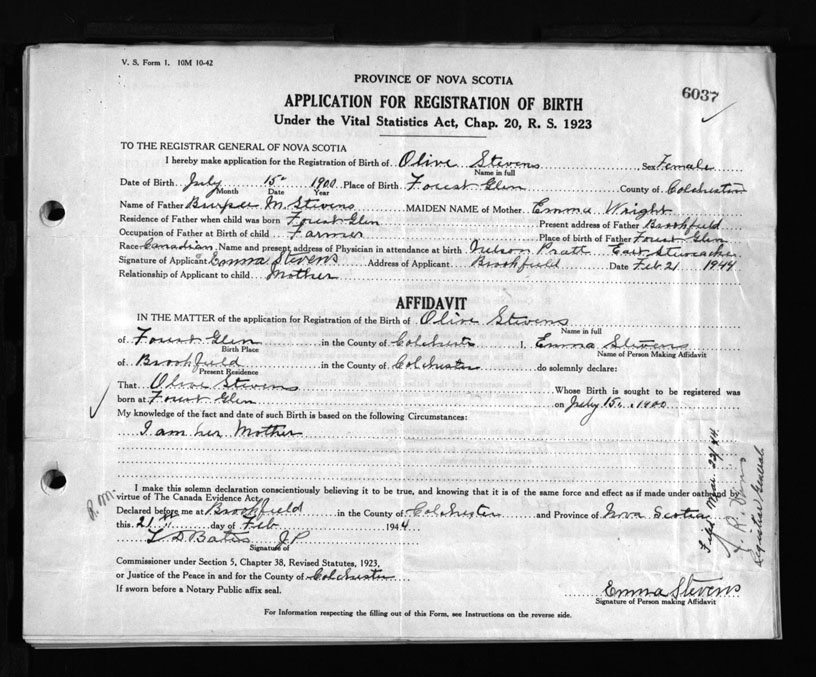 V. S. Form 1. 10M 10-42
PROVINCE OF NOVA SCOTIA
6037
APPLICATION FOR REGISTRATION OF BIRTH
Under the Vital Statistics Act, Chap. 20, R. S. 1923
TO THE REGISTRAR GENERAL OF NOVA SCOTIA
I hereby make application for the Registration of Birth of Olive Stevens Sex Female
Name in full
Date of Birth July 15 1900 Place of Birth Forest Glen County of Colchester
Month Date Year
Name of Father Burpee M. Stevens MAIDEN NAME of Mother Emma Wright
Residence of Father when child was born Forest Glen Present address of Father Brookfield
Occupation of Father at Birth of child Farmer Place of birth of Father Forest Glen
Race Canadian Name and present address of Physician in attendance at birth Nelson Pratt East Stewiacke
Signature of Applicant Emma Stevens Address of Applicant Brookfield Date Feb 21 1944
Relationship of Applicant to child Mother
AFFIDAVIT
IN THE MATTER of the application for Registration of the Birth of Olive Stevens
Name in full
of Forest Glen in the County of Colchester I, Emma Stevens
Birth Place Name of Person Making Affidavit
of Brookfield in the County of Colchester do solemnly declare:
Present Residence
That Olive Stevens Whose Birth is sought to be registered was
born at Forest Glen on July 15 1900
My knowledge of the fact and date of such Birth is based on the following Circumstances:
I am her Mother
I make this solemn declaration conscientiously believing it to be true, and knowing that it is of the same force and effect as if made under oath and by
virtue of The Canada Evidence Act.
R.M.
Declared before me at Brookfield in the County of Colchester and Province of Nova Scotia
this 21st day of Feb 1944
L D Bates J P
Signature of
Commissioner under Section 5, Chapter 38, Revised Statutes, 1923,
or Justice of the Peace in and for the County of Colchester
If sworn before a Notary Public affix seal.
Emma Stevens
Signature of Person making Affidavit
For Information respecting the filling out of this Form, see Instructions on the reverse side.
Mar. 22/44
Registrar General